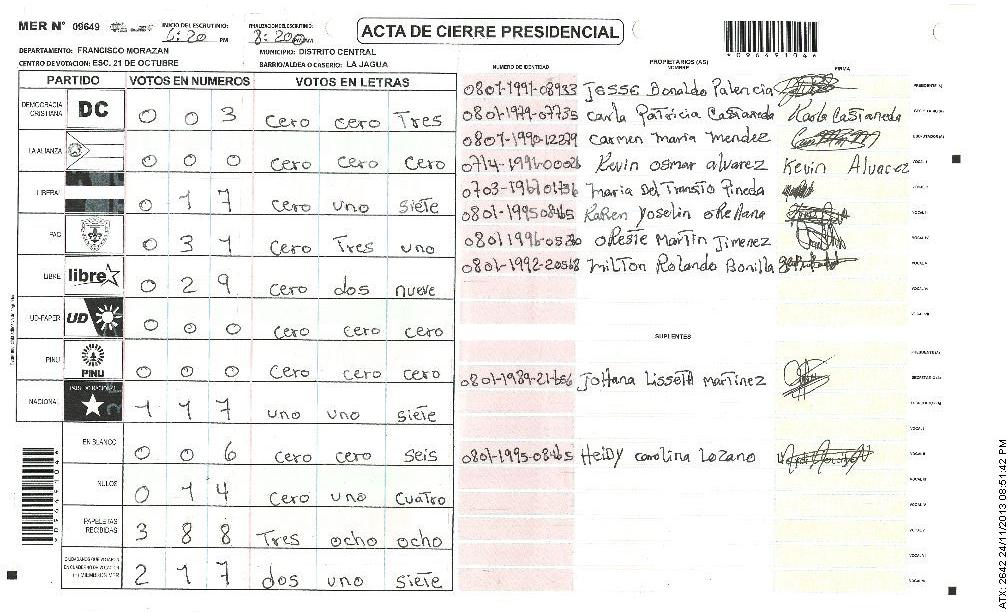 MER N° 09649 INICIO DEL ESCRUTINIO: 6:20 PM FINALIZACION DEL ESCRUTINIO: 8:20 PM
ACTA DE CIERRE PRESIDENCIAL
*09649104*
DEPARTAMENTO: FRANCISCO MORAZAN MUNICIPIO: DISTRITO CENTRAL
CENTRO DE VOTACION: ESC. 21 DE OCTUBRE BARRIO/ALDEA O CASERIO: LA JAGUA
PARTIDO VOTOS EN NUMEROS VOTOS EN LETRAS
DEMOCRACIA CRISTIANA DC 0 0 3 cero cero Tres
LA ALIANZA 0 0 0 cero cero cero
LIBERAL 0 1 7 cero uno siete
PAC 0 3 1 cero Tres uno
LIBRE libre 0 2 9 cero dos nueve
UD-FAPER UD 0 0 0 cero cero cero
PINU PINU 0 0 0 cero cero cero
NACIONAL PARTIDO NACIONAL 1 1 7 uno uno siete
EN BLANCO 0 0 6 cero cero seis
NULOS 0 1 4 cero uno cuatro
PAPELETAS RECIBIDAS 3 8 8 Tres ocho ocho
CIUDADANOS QUE VOTARON EN CUADERNO DE VOTACION (+) MIEMBROS MER 2 1 7 dos uno siete
NUMERO DE IDENTIDAD PROPIETARIOS (AS) NOMBRE FIRMA
0801-1991-08933 Jesse Bonaldo Palencia PRESIDENTE (A)
0801-1979-07735 Carla Patricia Castaneda Karla Castaneda SECRETARIO (A)
0807-1990-12279 Carmen Maria Mendez ESCRUTADOR (A)
0714-1991-00026 Kevin Osmar alvarez Kevin Alvarez VOCAL I
Maria Del Transito Pineda VOCAL II
0801-1995-08465 Karen Yoselin oRellana VOCAL III
oReste Martin Jimenez VOCAL IV
0801-1992-20568 Milton Rolando Bonilla VOCAL V
VOCAL VI
VOCAL VII
SUPLENTES
PRESIDENTE (A)
0801-1989-21656 Johana Lisseth Martinez SECRETARIO (A)
ESCRUTADOR (A)
VOCAL I
0801-1995-08465 Heidy Carolina Lozano VOCAL II
VOCAL III
VOCAL IV
VOCAL V
VOCAL VI
VOCAL VII
ATX: 2642 24/11/2013 08:51:42 PM